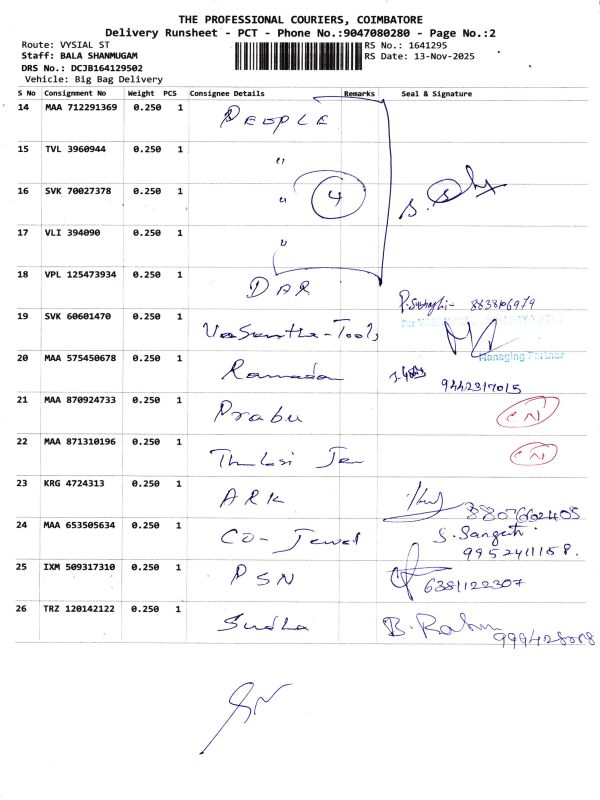 THE PROFESSIONAL COURIERS, COIMBATORE
Delivery Runsheet - PCT - Phone No.:9047080280 - Page No.:2
Route: VYSIAL ST
RS No.: 1641295
Staff: BALA SHANMUGAM
RS Date: 13-Nov-2025
DRS No.: DCJB164129502
Vehicle: Big Bag Delivery
S No Consignment No Weight PCS Consignee Details Remarks Seal & Signature
14 MAA 712291369 0.250 1 PEOPLE
15 TVL 3960944 0.250 1 "
16 SVK 70027378 0.250 1 " 4
17 VLI 394090 0.250 1 "
18 VPL 125473934 0.250 1 DAR
19 SVK 60601470 0.250 1 Vasantha-Tools
Managing Partner
20 MAA 575450678 0.250 1 Ramada 9442317015
21 MAA 870924733 0.250 1 Prabu
22 MAA 871310196 0.250 1
23 KRG 4724313 0.250 1 ARK 8807602405
24 MAA 653505634 0.250 1 CO-Jewel S. Sangeeth
9952411158.
25 IXM 509317310 0.250 1 PSN 6381122307
26 TRZ 120142122 0.250 1 Sudha